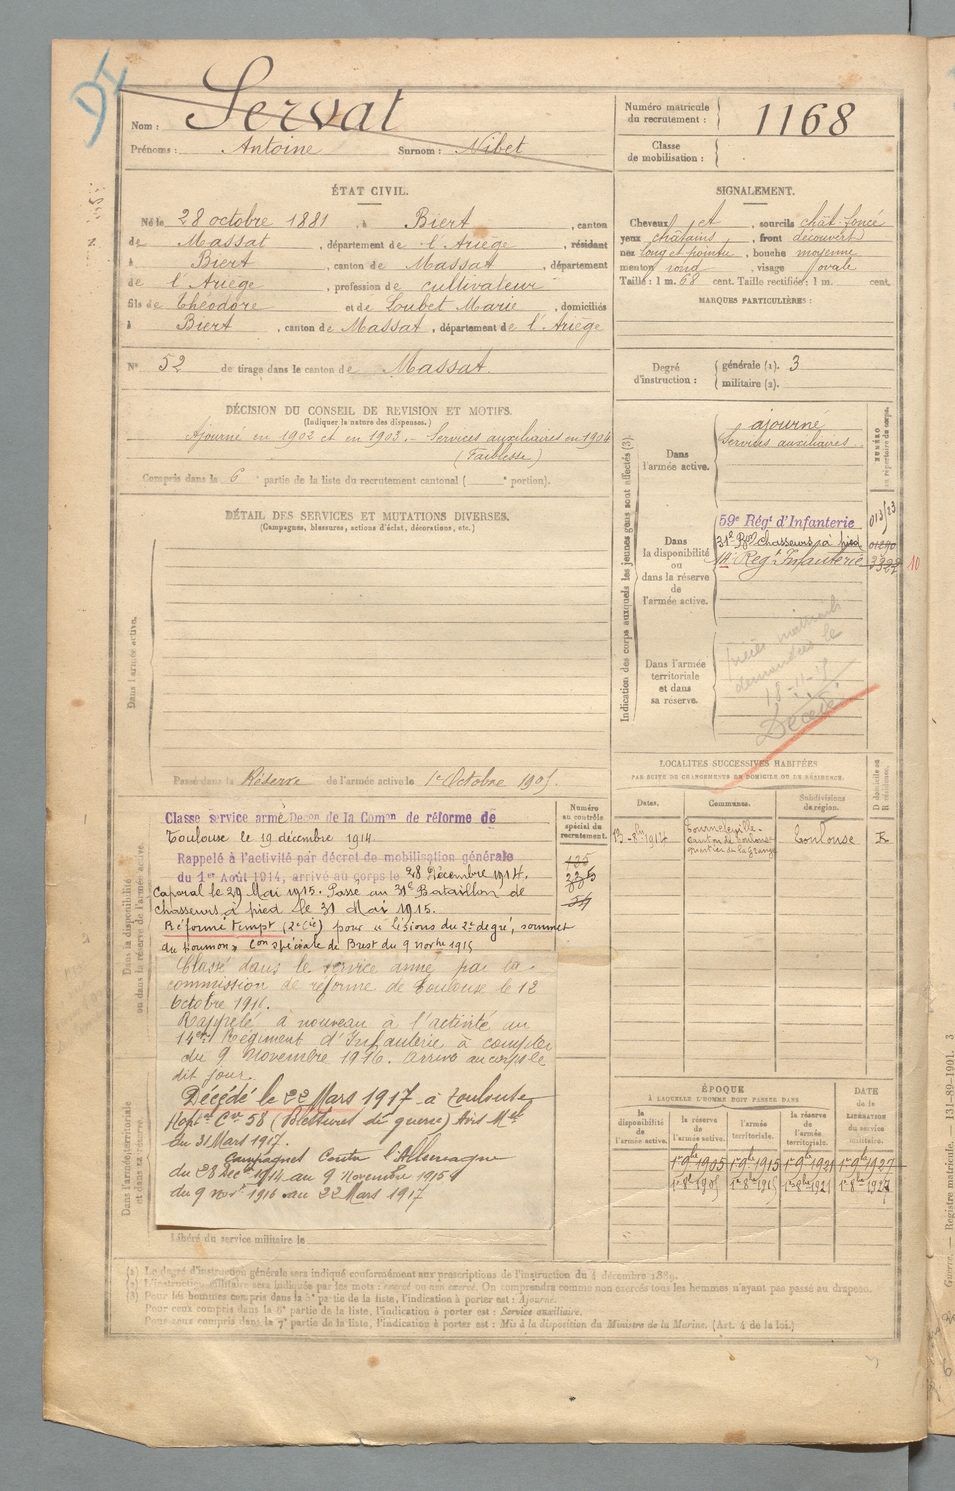 DI
Nom : Servat
Prénoms : Antoine Surnom : Nibet
Numéro matricule du recrutement : 1168
Classe de mobilisation :
ÉTAT CIVIL.
Né le 28 octobre 1881, à Biert, canton
de Massat, département de l'Ariège, résidant
à Biert, canton de Massat, département
de l'Ariège, profession de cultivateur
fils de Théodore et de Loubet Marie, domiciliés
à Biert, canton de Massat, département de l'Ariège
N° 52 de tirage dans le canton de Massat.
SIGNALEMENT.
Cheveux et, sourcils chât. foncé
yeux châtains, front découvert
nez long et pointu, bouche moyenne
menton rond, visage ovale
Taille : 1 m. 68 cent. Taille rectifiée : 1 m. cent.
MARQUES PARTICULIÈRES :
Degré d'instruction : générale (1). 3
militaire (2).
DÉCISION DU CONSEIL DE REVISION ET MOTIFS.
(Indiquer la nature des dispenses.)
Ajourné en 1902 et en 1903. - Services auxiliaires en 1904
(Faiblesse)
Compris dans la 6e partie de la liste du recrutement cantonal ( portion).
DÉTAIL DES SERVICES ET MUTATIONS DIVERSES.
(Campagnes, blessures, actions d'éclat, décorations, etc.)
Dans l'armée active.
Passé dans la Réserve de l'armée active le 1er Octobre 1905.
Indication des corps auxquels les jeunes gens sont affectés (3).
NUMÉRO au répertoire du corps.
Dans l'armée active.
ajourné
Services auxiliaires.
Dans la disponibilité ou dans la réserve de l'armée active.
59e Régt d'Infanterie 013/23
31e Bon Chasseurs à pied 01290
14e Regt Infanterie 3322 10
Dans l'armée territoriale et dans sa réserve.
pièces matricules
demandées le
18-11-
Décédé
LOCALITÉS SUCCESSIVES HABITÉES
PAR SUITE DE CHANGEMENTS DE DOMICILE OU DE RÉSIDENCE.
Dates. Communes. Subdivisions de région. D domicile ou R résidence.
1914 Tournefeuille
Canton de Toulouse
quartier de la Grange
Toulouse R
Dans la disponibilité ou dans la réserve de l'armée active.
Numéro au contrôle spécial du recrutement.
Classe service armé Décon de la Comon de réforme de
Toulouse le 19 décembre 1914.
Rappelé à l'activité par décret de mobilisation générale
du 1er Août 1914, arrivé au corps le 28 Décembre 1914.
Caporal le 29 Mai 1915. Passé au 31e Bataillon de
chasseurs à pied le 31 Mai 1915.
Réformé tempt (2e Cie) pour "Lésions du 2e degré, sommet
du poumon" Con spéciale de Brest du 9 novbre 1915
Classé dans le service armé par la
commission de réforme de Toulouse le 12
Octobre 1916.
Rappelé à nouveau à l'activité au
14e Régiment d'Infanterie à compter
du 9 Novembre 1916. Arrivé au corps le
dit jour.
Décédé le 22 Mars 1917 à Toulouse
Hopt Cre 58 (Blessures de guerre) Avis Mel
du 31 Mars 1917.
Campagnes Contre l'Allemagne
du 28 Déc 1914 au 9 Novembre 1915
du 9 nov. 1916 au 22 Mars 1917
Dans l'armée territoriale et dans sa réserve.
Libéré du service militaire le
ÉPOQUE
À LAQUELLE L'HOMME DOIT PASSER DANS
la disponibilité de l'armée active. la réserve de l'armée active. l'armée territoriale. la réserve de l'armée territoriale.
DATE de la LIBÉRATION du service militaire.
1er 9bre 1905 1er 9bre 1915 1er 9bre 1921 1er 9bre 1927
1er 8bre 1905 1er 8bre 1915 1er 8bre 1921 1er 8bre 1927
(1) Le degré d'instruction générale sera indiqué conformément aux prescriptions de l'instruction du 4 décembre 1889.
(2) L'instruction militaire sera indiquée par les mots : exercé ou non exercé. On comprendra comme non exercés tous les hommes n'ayant pas passé au drapeau.
(3) Pour les hommes compris dans la 5e partie de la liste, l'indication à porter est : Ajourné.
Pour ceux compris dans la 6e partie de la liste, l'indication à porter est : Service auxiliaire.
Pour ceux compris dans la 7e partie de la liste, l'indication à porter est : Mis à la disposition du Ministre de la Marine. (Art. 4 de la loi.)
Guerre. — Registre matricule. — 131-89-1901. 3